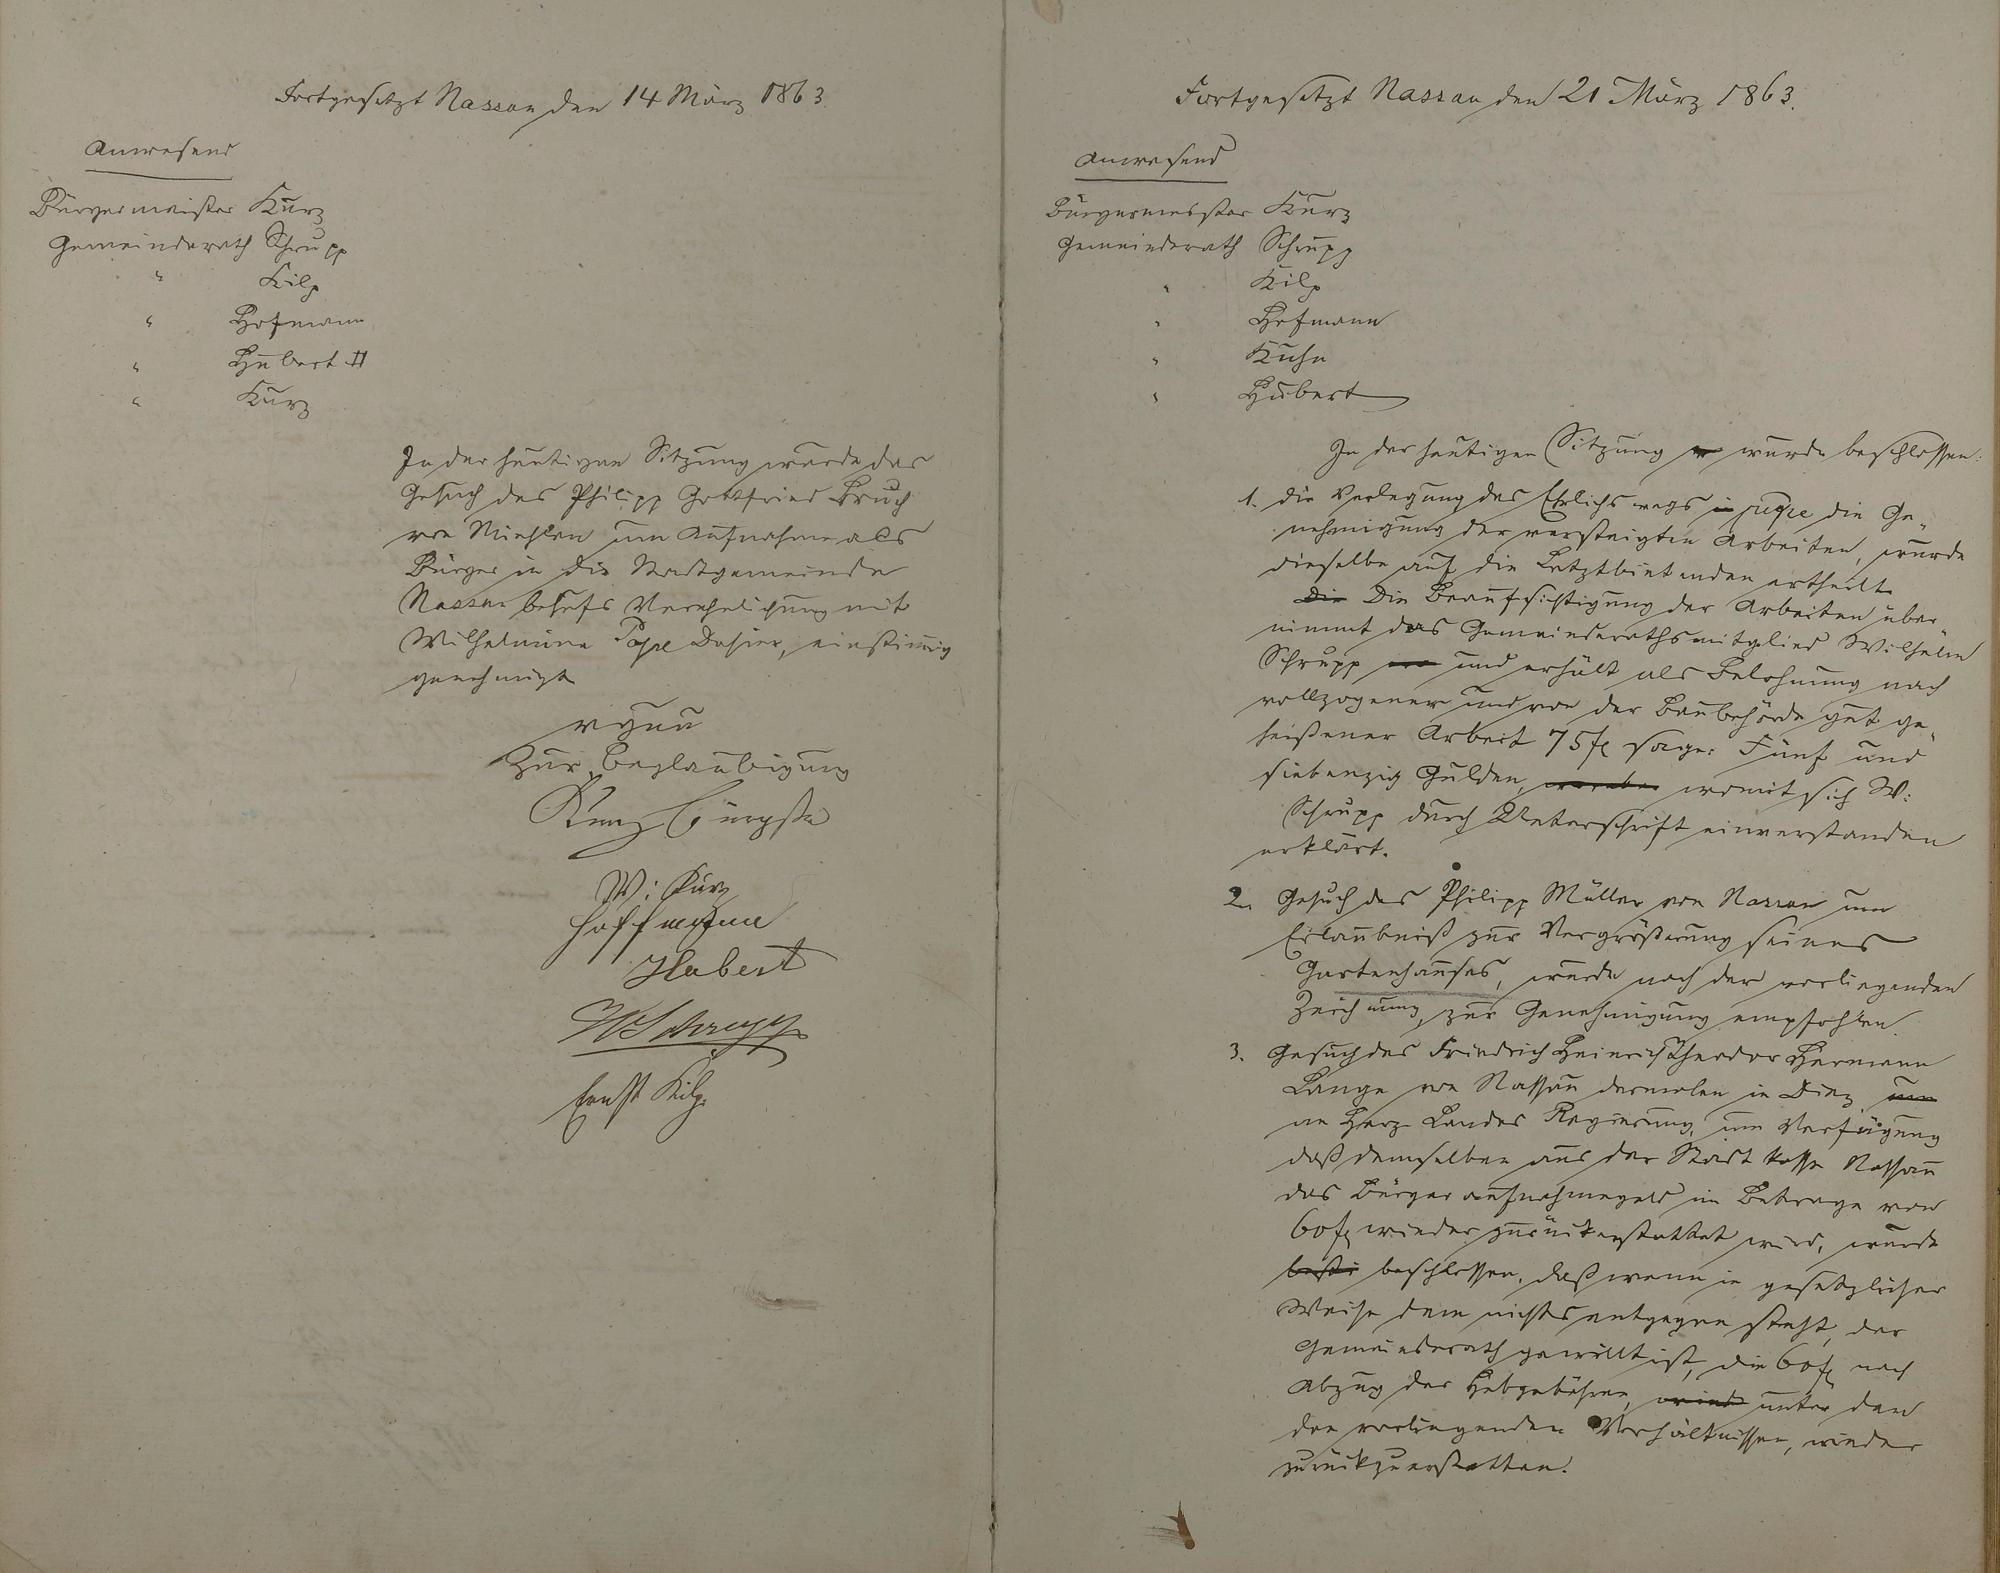 Fortgesetzt Nassau den 14 März 1863.
Anwesend
Bürgermeister Kurz
Gemeinderath Schrupp
" Kilp
" Hofmann
" Hubert II
" Kurz
In der heutigen Sitzung wurde das
Gesuch des Philipp Gottfried Bruch
von Miehlen um Aufnahme als
Bürger in die Stadtgemeinde
Nassau behufs Verehelichung mit
Wilhelmine Pape dahier, einstimmig
genehmigt
vgnu
Zur Beglaubigung
Kurz Bürgstr
W: Kurz
Hoffmann
Hubert
W Schrupp
Ernst Kilp.
Fortgesetzt Nassau den 21 März 1863.
Anwesend
Bürgermeister Kurz
Gemeinderath Schrupp
" Kilp
" Hofmann
" Kuhn
" Hubert
In der heutigen Sitzung wurde beschlossen:
1. die Verlegung des Ehlichs wegs die Ge-
nehmigung der versteigten Arbeiten, wurde
dieselbe auf die Letztbietenden ertheilt
Die Beaufsichtigung der Arbeiten über
nimmt das Gemeinderathsmitglied Wilhelm
Schrupp und erhält als Belohnung nach
vollzogener und von der Baubehörde gut ge-
heißener Arbeit 75 fl sage: Fünf und
siebenzig Gulden, womit sich W:
Schrupp durch Unterschrift einverstanden
erklärt.
2. Gesuch des Philipp Müller von Nassau um
Erlaubniß zur Vergrößerung seines
Gartenhauses, wurde nach der vorliegenden
Zeichnung, zur Genehmigung empfohlen.
3. Gesuch des Friedrich Heinrich Theodor Hermann
Lange von Nassau dermalen in Diez
an Herz. Landes Regierung, um Verfügung
daß demselben aus der Stadt kasse Nassau
das Bürger aufnahmegeld im Betrage von
60 fl wieder zurückerstattet wird, wurde
beschlossen, daß wenn in gesetzlicher
Weise dem nichts entgegen steht, der
Gemeinderath gewillt ist, die 60 fl nach
Abzug der Hebgebühren, unter den
den vorliegenden Verhältnissen, wieder
zurückzuerstatten.